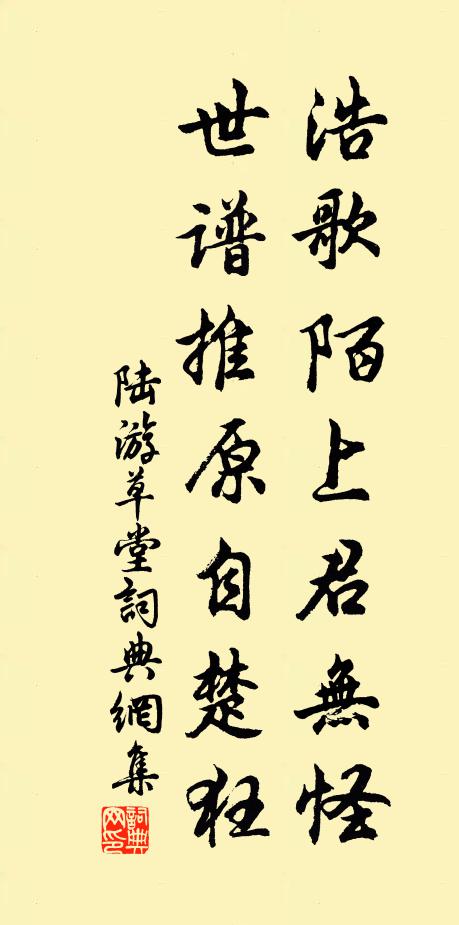 浩歌陌上君無怪
世谱推原自楚狂
陆游草堂詞典網集
詞典網印